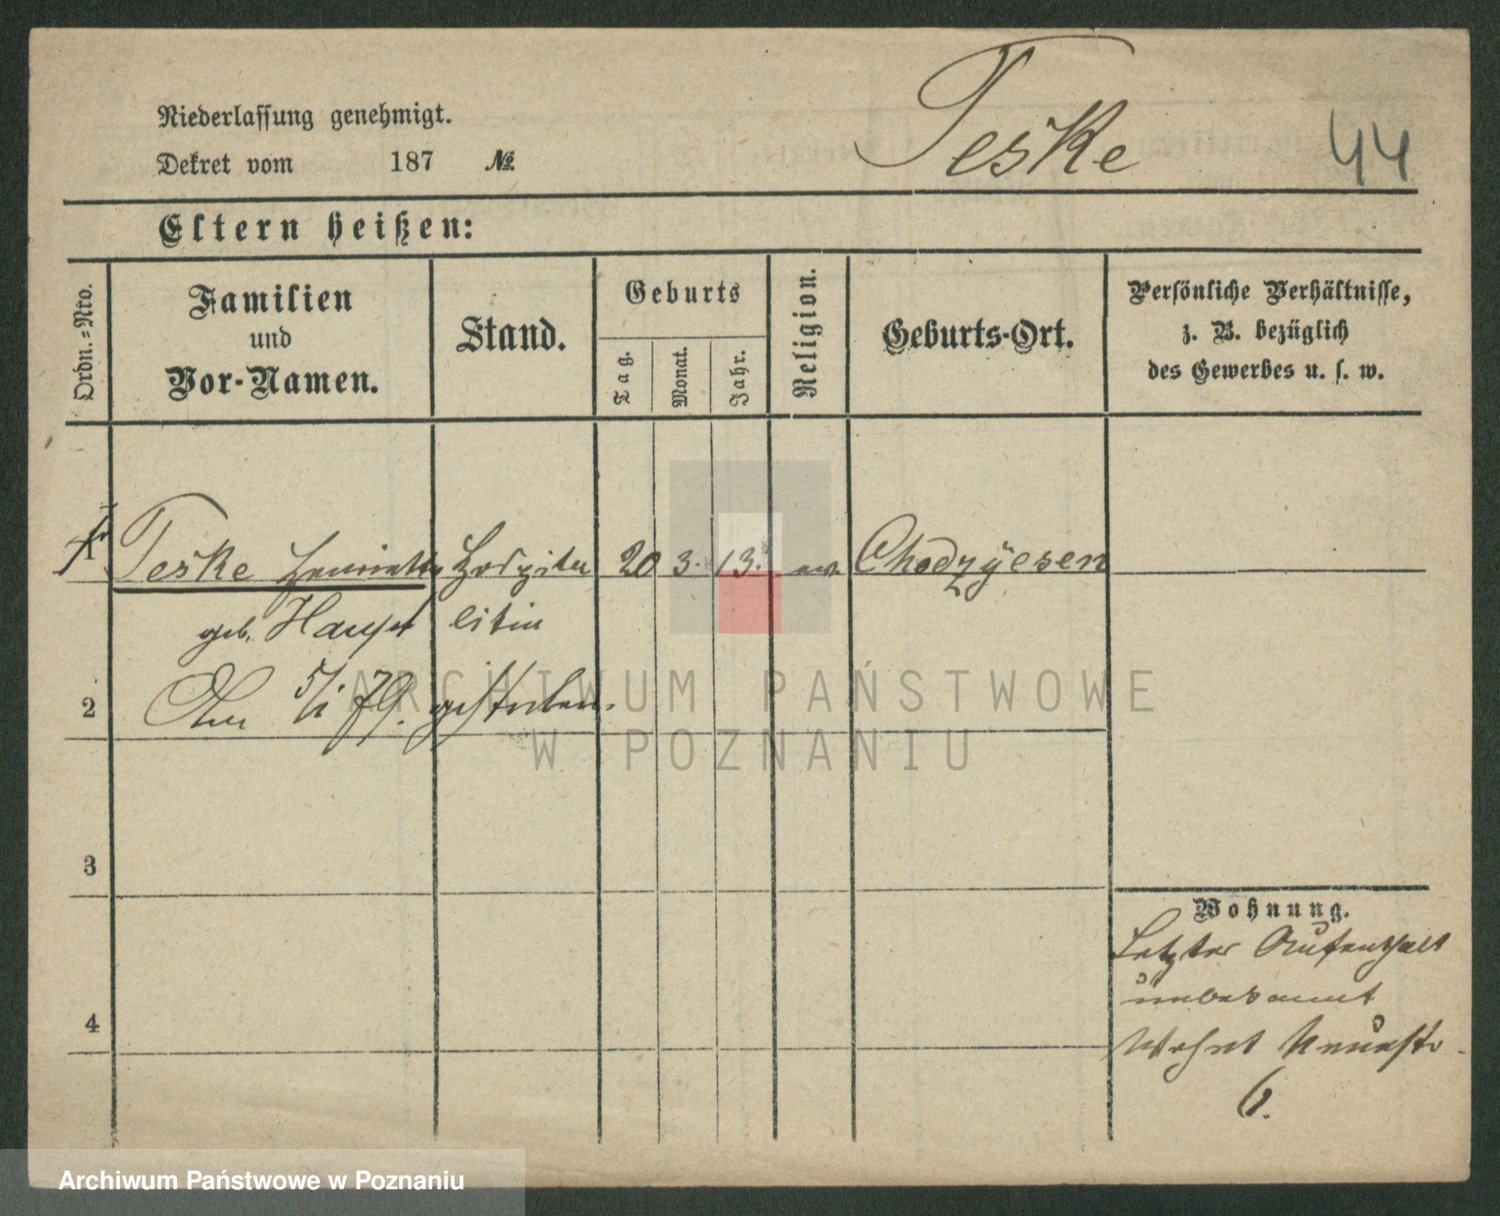 Niederlassung genehmigt.
Dekret vom 187 №
Teske 44
Eltern heißen:
Ordn.-Nro.
Familien
und
Vor-Namen.
Stand.
Geburts
Tag.
Monat.
Jahr.
Religion.
Geburts-Ort.
Persönliche Verhältnisse,
z. B. bezüglich
des Gewerbes u. s. w.
1 Teske Henriette Hospita 20 3. 13. ev. Chodzÿesen
geb. Haupt litin
2 Am 5/1 79. gestorben.
3
4
Wohnung.
Letzter Aufenthalt
unbekannt
Wohnt Neuestr.
6.
ARCHIWUM PAŃSTWOWE
W POZNANIU
Archiwum Państwowe w Poznaniu